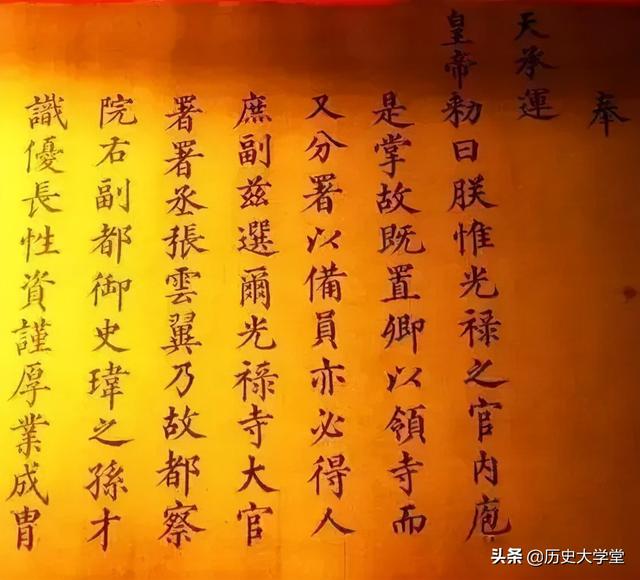 奉
天承運
皇帝勑曰朕惟光祿之官内庖
是掌故既置卿以領寺而
又分署以備員亦必得人
庶副兹選爾光祿寺大官
署署丞張雲翼乃故都察
院右副都御史瑋之孫才
識優長性資謹厚業成胄
头条 @历史大学堂